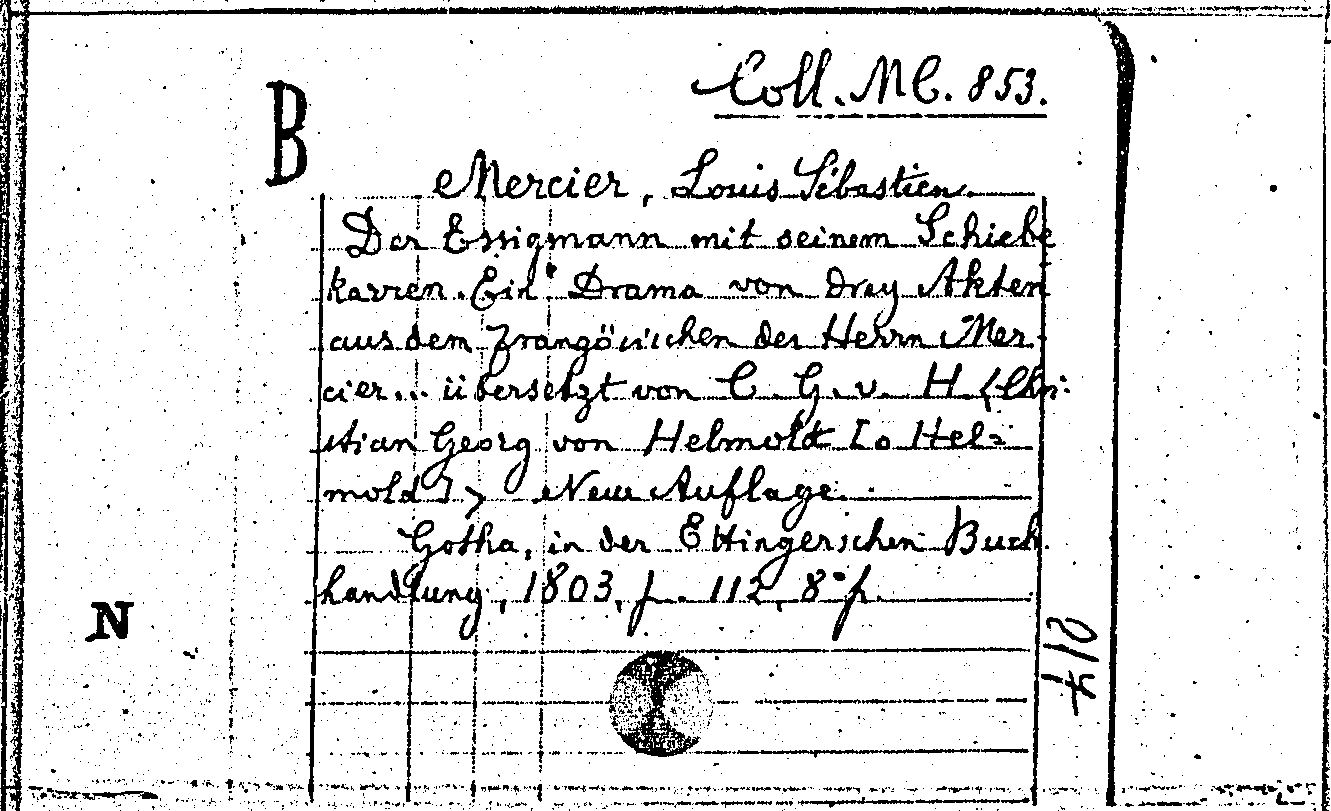 Coll. MC. 853.
B
Mercier, Louis Sébastien.
Der Essigmann mit seinem Schiebe
karren. Ein Drama von drey Akten
aus dem Französischen des Herrn Mer-
cier... übersetzt von C. G. v. H <Chri-
stian Georg von Helmolt [o Hel=
mold]> Neue Auflage.
Gotha, in der Ettingerschen Buch
handlung, 1803, p. 112, 8°p.
N